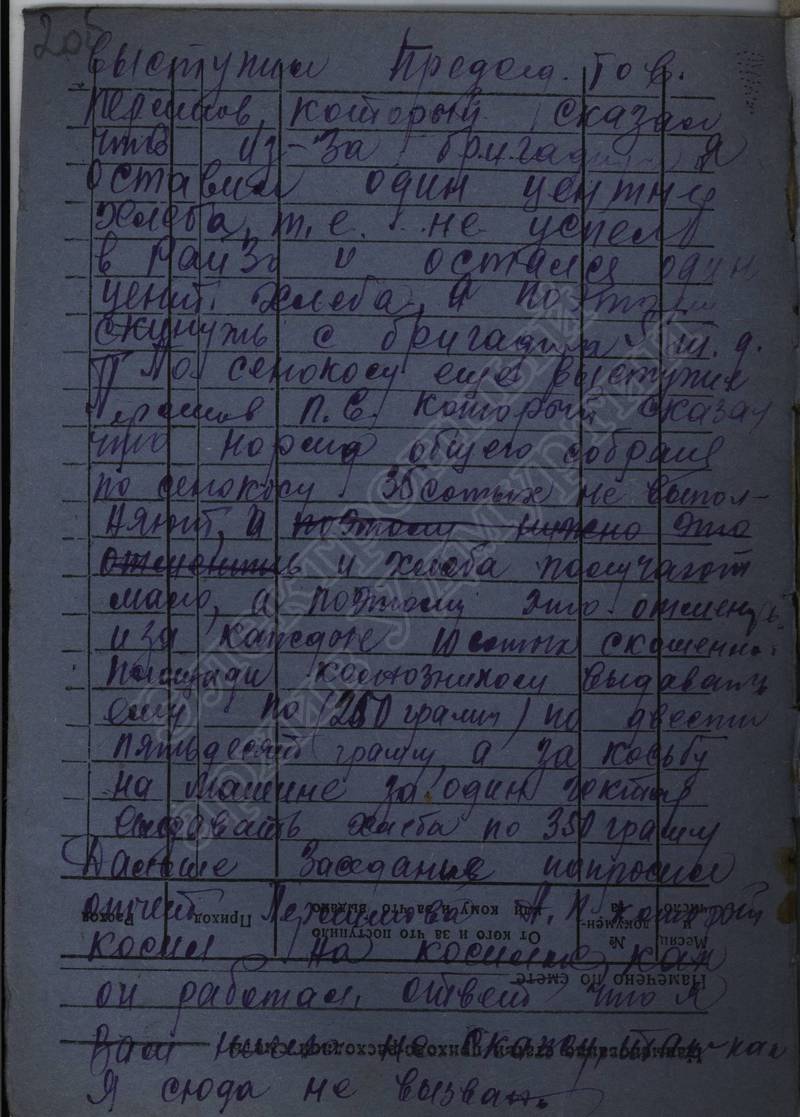 205
выступил Председ. тов.
который сказал
что из-за бригадира я
оставил один центнер
хлеба, т.е. не успели
в РайЗо и остался один
цент. хлеба, а поэтому
с бригадира и т.д.
По сенокосу еще выступил
П.С. который сказал
что норма общего собрания
по сенокосу 35 сотых не выпол-
няют, и поэтому нужно это
отменить и хлеба получают
мало, а поэтому это отменить
и за каждые 10 сотых скошенной
площади колхознikom выдавать
ему по (250 грамм) по двести
пятьдесят грамм, а за косьбу
на машине за один гектар
выдавать хлеба по 350 грамм
Дальше заседание попросило
отчет А. П. который
косил на косилке, как
он работал, ответ что я
Вам ничего не скажу, так как
Я сюда не вызван.
Расход
Приход
От кого и за что поступило
или кому и за что выдано
№
докумен-
та
Месяц
и
число
Намечено по смете
Наименование статьи приходо-расходной сметы
Электронный
архив Удмуртии